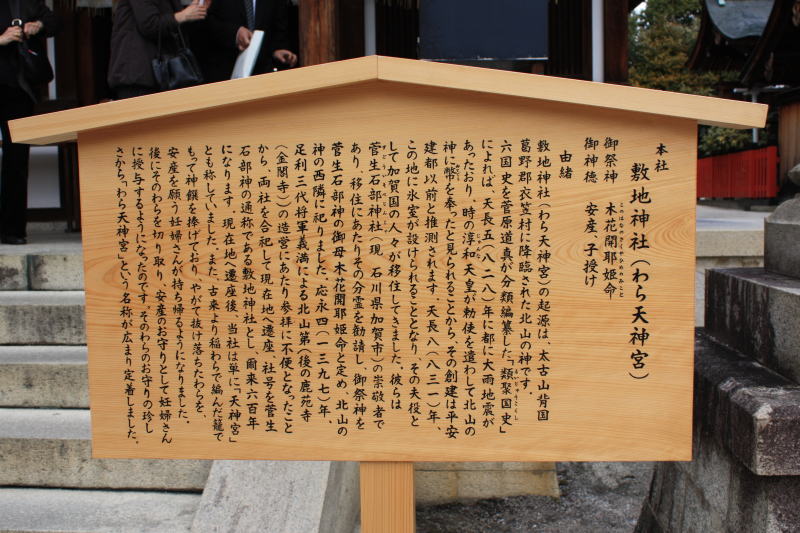 本社
敷地神社（わら天神宮）
御祭神　木花開耶姫命
このはなのさくやひめのみこと
御神徳　安産、子授け
由緒
敷地神社（わら天神宮）の起源は、太古山背国
葛野郡衣笠村に降臨された北山の神です。
六国史を菅原道真が分類編纂した「類聚国史」
るいじゅうこくし
によれば、天長五（八二八）年に都に大雨地震が
あったおり、時の淳和天皇が勅使を遣わして北山の
じゅんな
神に幣を奉ったと見られることから、その創建は平安
ぬさ
建都以前と推測されます。天長八（八三一）年、
この地に氷室が設けられることとなり、その夫役と
して加賀国の人々が移住してきました。彼らは
菅生石部神社（現、石川県加賀市）の崇敬者で
あり、移住にあたりその分霊を勧請し、御祭神を
菅生石部神の御母木花開耶姫命と定め、北山の
神の西隣に祀りました。応永四（一三九七）年、
足利三代将軍義満による北山第（後の鹿苑寺
（金閣寺））の造営にあたり参拝に不便となったこと
から、両社を合祀して現在地へ遷座、社号を菅生
石部神の通称である敷地神社とし、爾来六百年
になります。現在地へ遷座後、当社は単に「天神宮」
とも称していました。また、古来より稲わらで編んだ籠で
もって神饌を捧げており、やがて抜け落ちたわらを、
安産を願う妊婦さんが持ち帰るようになりました。
後にそのわらを切り取り、安産のお守りとして妊婦さん
に授与するようになったのです。そのわらのお守りの珍し
さから「わら天神宮」という名称が広まり定着しました。